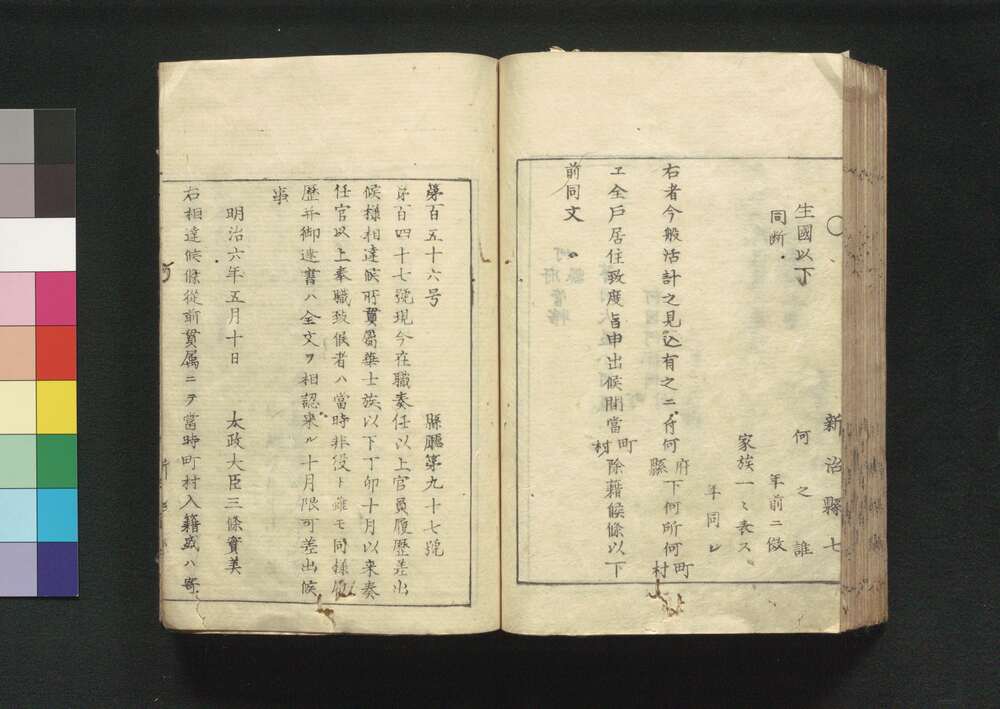 新治縣 七
〇
生國以下
同断
何之誰
年前ニ倣
家族一々表ス
年同シ
右者今般活計之見込有之ニ付何府縣下何所何町村
エ全戸居住致度旨申出候間當町村除籍候條以下
前同文
第百五十六号
縣廳第九十七號
第百四十七號現今在職奏任以上官員履歴差出
候様相達候所貫属華士族以下丁卯十月以来奏
任官以上奉職致候者ハ當時非役ト雖モ同様履
歴并御達書ハ全文ヲ相認来ル十月限可差出候
事
明治六年五月十日
太政大臣三條實美
右相達候條従前貫属ニテ當時町村入籍或ハ寄